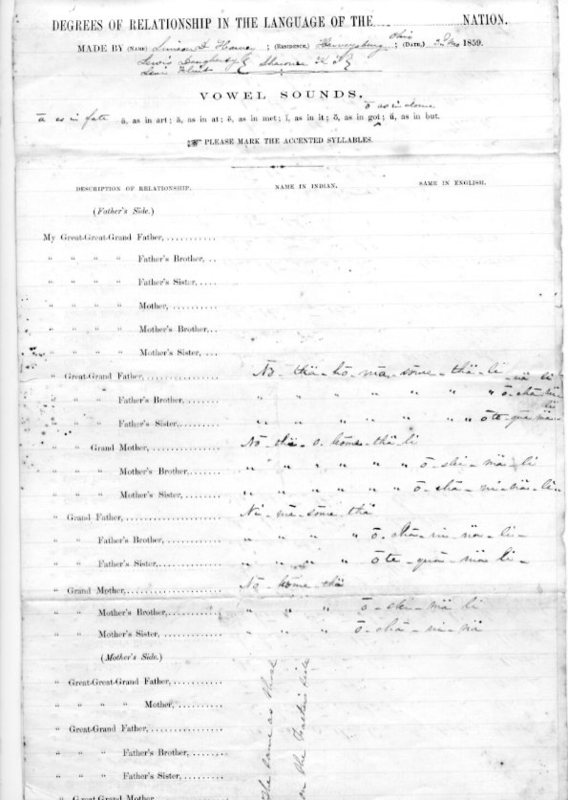 DEGREES OF RELATIONSHIP IN THE LANGUAGE OF THE NATION.
Ohio
MADE BY (NAME) Simeon D Harvey ; (RESIDENCE,) Harveysburg ; (DATE,) 1859.
Lewis Dougherty Shawnee K T
Levi Flint
VOWEL SOUNDS.
ō as in alone
ā as in fate ä, as in art; ă, as in at; ĕ, as in met; ĭ, as in it; ŏ, as in got; ŭ, as in but.
PLEASE MARK THE ACCENTED SYLLABLES.
DESCRIPTION OF RELATIONSHIP. NAME IN INDIAN. SAME IN ENGLISH.
(Father's Side.)
My Great-Great-Grand Father,
" " " " Father's Brother,
" " " " Father's Sister,
" " " " Mother,
" " " " Mother's Brother,
" " " " Mother's Sister,
" Great-Grand Father, No - thä - hō - mä - some - thä - li
" " " Father's Brother, " " " " " " "
" " " Father's Sister, " " " " " " "
" " Grand Mother, Nō - thä - o - kōme - thä - li
" " " Mother's Brother, " " " " " ō - shi - mä - li
" " " Mother's Sister, " " " " " ō - chä - ni - nä - li
" Grand Father, Ni - mä - some - thä
" " Father's Brother, " " " " ō - chä - ni - nä - li
" " Father's Sister, " " " " ōte - quä - mä - li
" Grand Mother, Nō - kōme - thä
" " Mother's Brother, " " " ō - shi - mä - li
" " Mother's Sister, " " " ō - chä - ni - nä
(Mother's Side.)
" Great-Great-Grand Father,
" " " " Mother,
" Great-Grand Father,
" " " Father's Brother,
" " " Father's Sister,
" Great-Grand Mother
The same as those
on the Father's side